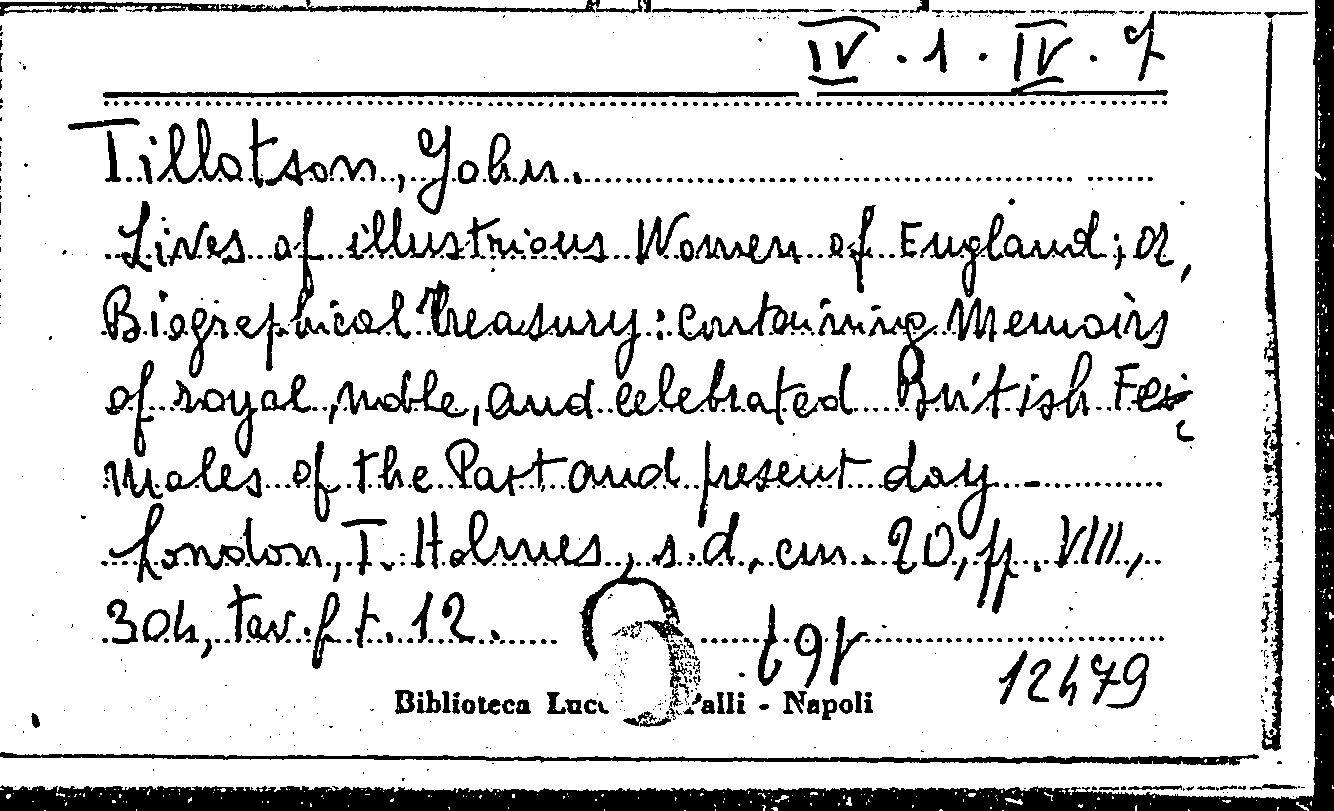 IV . 1 . IV . 7
Tillotson, John.
Lives of illustrious Women of England; or,
Biographical Treasury: containing Memoirs
of royal, noble, and celebrated British Fe-
males of the Past and present day -
London, T. Holmes, s.d, cm. 20, pp. VIII,
304, tav. f t. 12.
12479
Biblioteca Lucc Palli - Napoli